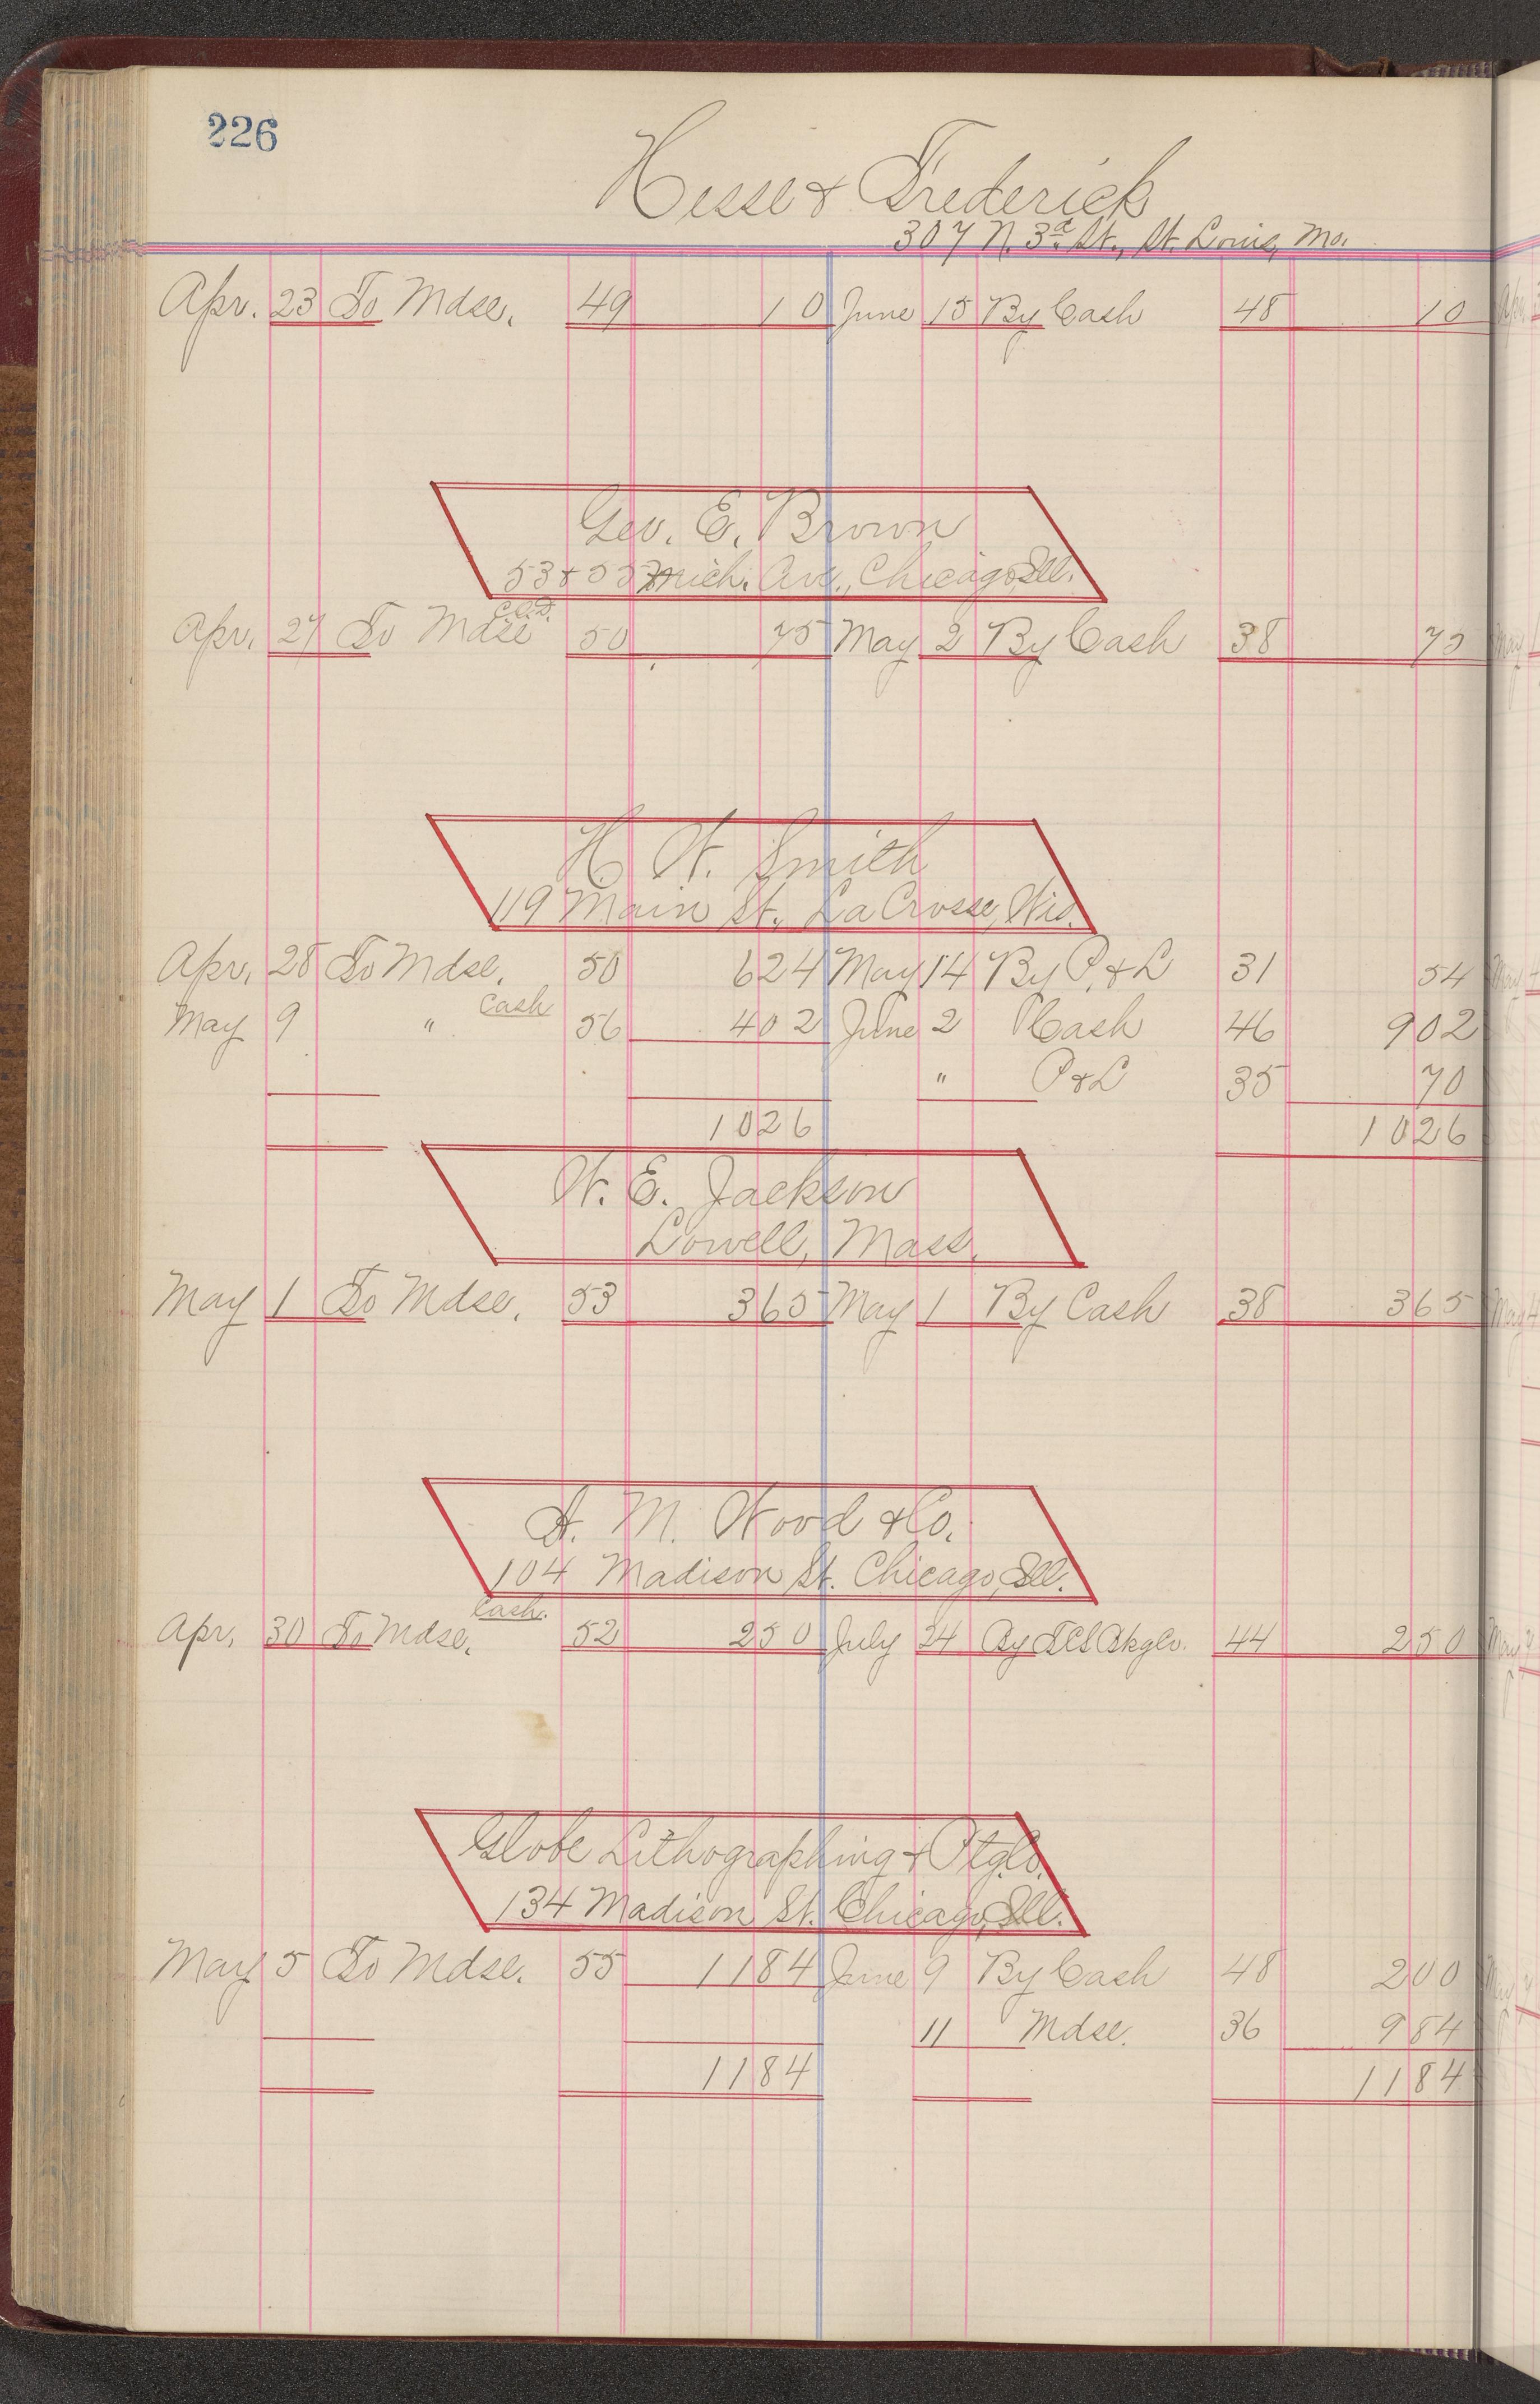 226
Hesse & Frederick
307 N. 3d St., St. Louis, Mo.
Apr. 23 To Mdse. 49 10 June 15 By Cash 48 10
Geo. E. Brown
53 & 55 Mich. Ave., Chicago, Ill.
C.O.D.
Apr. 27 To Mdse 50 75 May 2 By Cash 38 75
H. W. Smith
119 Main St., La Crosse, Wis.
Apr. 28 To Mdse. 50 624 May 14 By P. & L 31 54
May 9 " Cash 56 402 June 2 Cash 46 902
" P & L 35 70
1026 1026
W. E. Jackson
Lowell, Mass.
May 1 To Mdse. 53 365 May 1 By Cash 38 365
A. M. Wood & Co.
104 Madison St. Chicago, Ill.
Cash.
Apr. 30 To Mdse. 52 250 July 24 By 44 250
Globe Lithographing & Ptg. Co.
134 Madison St. Chicago, Ill.
May 5 To Mdse. 55 1184 June 9 By Cash 48 200
11 Mdse. 36 984
1184 1184